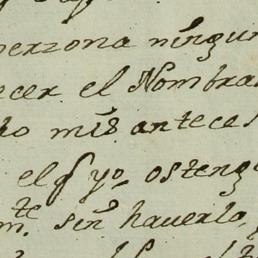 perzona ningun
ecer el Nombra
ho mis anteces
el q yo osteng
m.te sin haverlo,